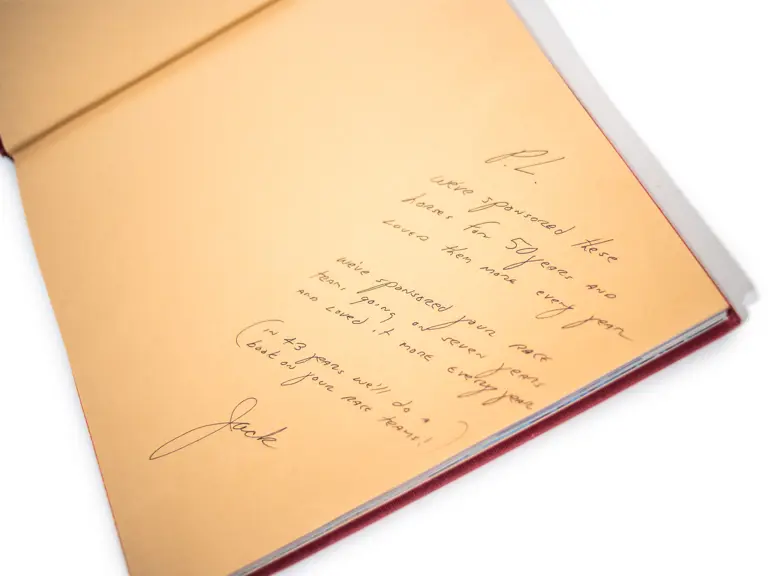 P.L.
we've sponsored these
horses for 50 years and
loved them more every year
we've sponsored your race
teams going on seven years
and loved it more every year
(in 43 years we'll do a
book on your race teams!)
Jack